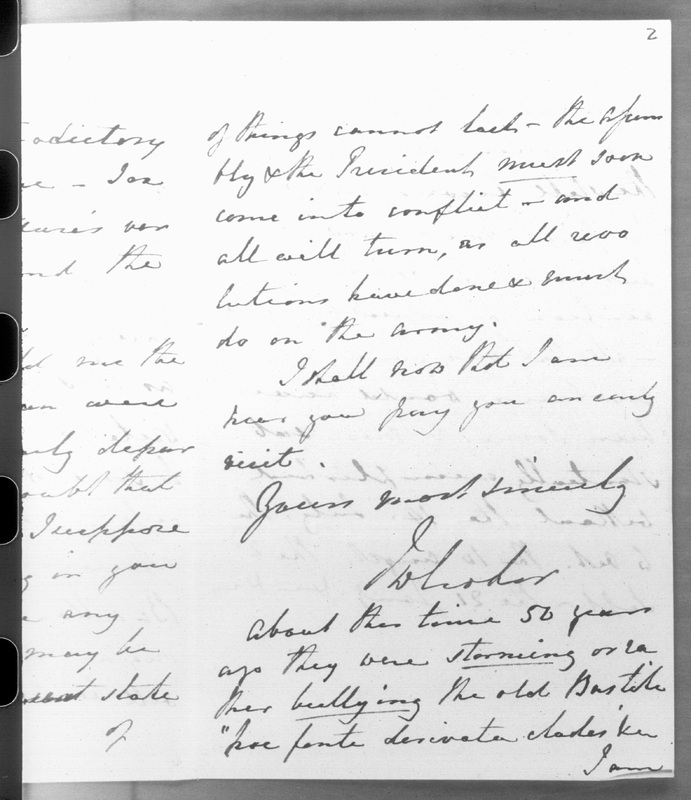 2
adictory
ne - I
and the
me the
were
depar
doubt that
I suppose
in you
any
may be
state
of
of things cannot last - the Assem
bly & the President must soon
come into conflict - and
all will turn, as all revo
lutions have done & must
do on the army.
I shall now that I am
near you pay you an early
visit.
Yours most sincerely
JWCroker
About this time 50 years
ago they were storming or ra
ther bullying the old Bastile
"hoc fonte derivata clades" &c
I am